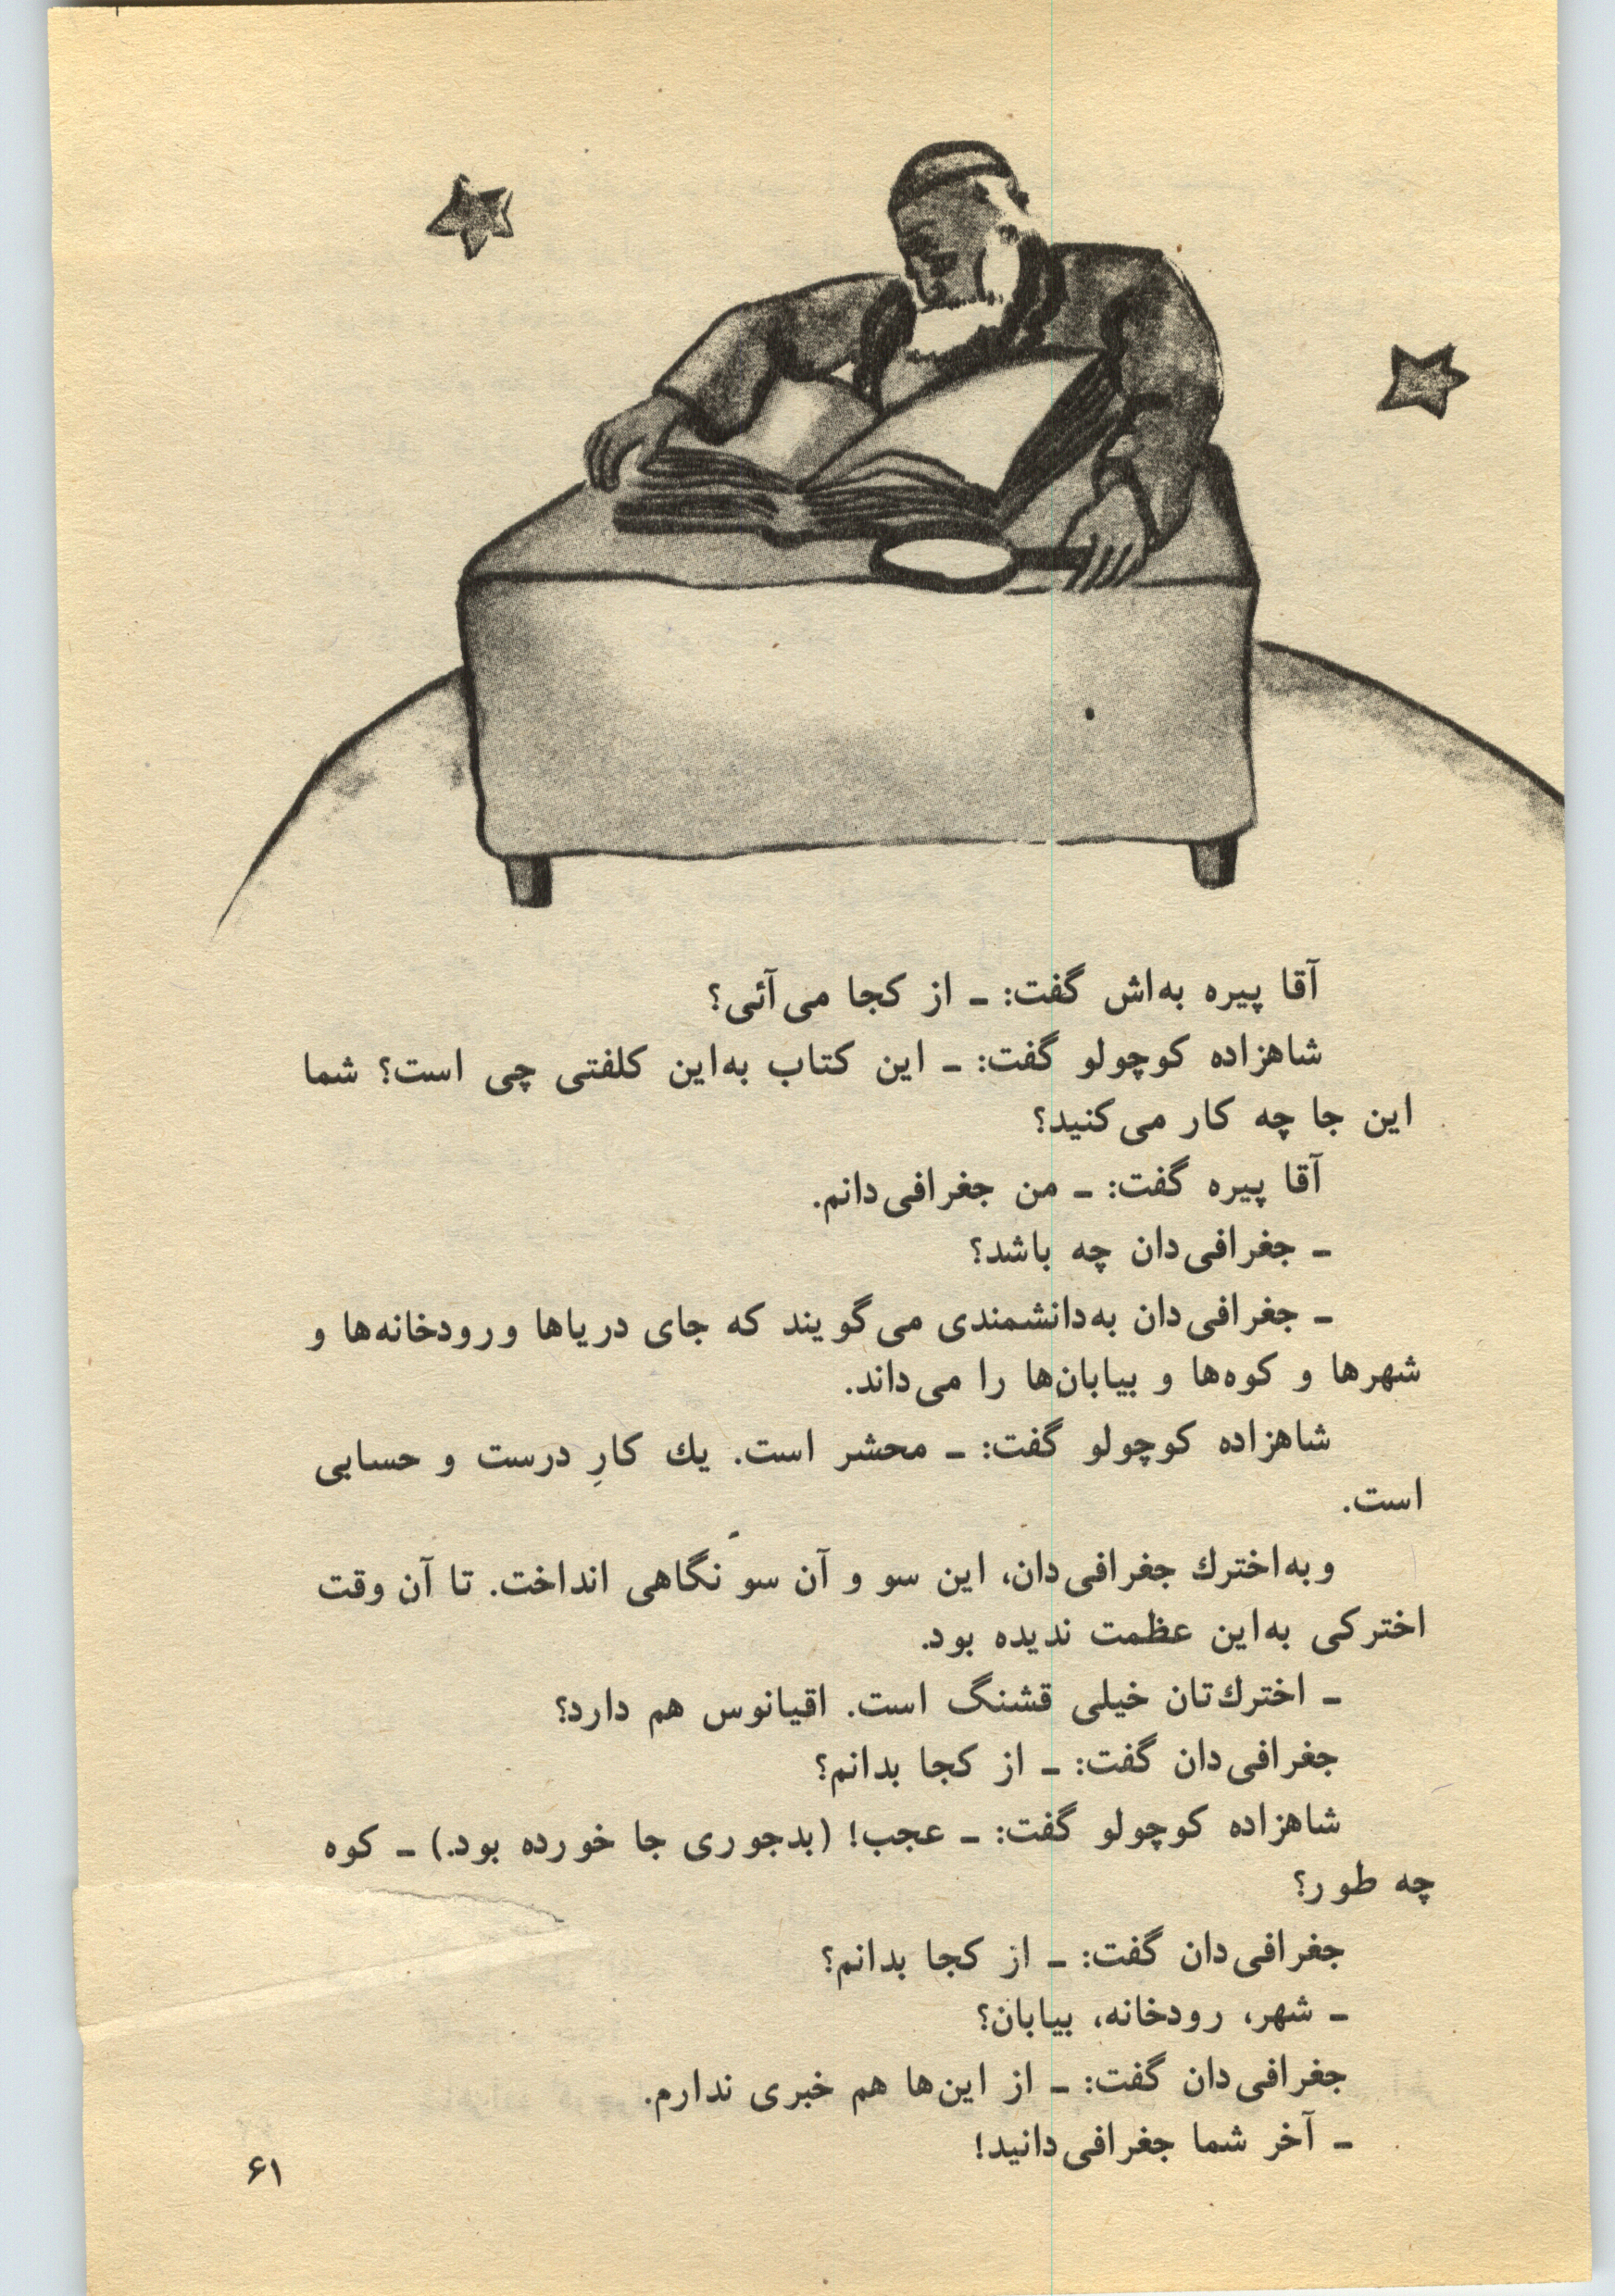 آقا پیره به‌اش گفت: ـ از کجا می‌آئی؟
شاهزاده کوچولو گفت: ـ این کتاب به‌این کلفتی چی است؟ شما
این جا چه کار می‌کنید؟
آقا پیره گفت: ـ من جغرافی‌دانم.
ـ جغرافی‌دان چه باشد؟
ـ جغرافی‌دان به‌دانشمندی می‌گویند که جای دریاها و رودخانه‌ها و
شهرها و کوه‌ها و بیابان‌ها را می‌داند.
شاهزاده کوچولو گفت: ـ محشر است. یك کارِ درست و حسابی
است.
و به‌اخترك جغرافی‌دان، این سو و آن سو نگاهی انداخت. تا آن وقت
اخترکی به‌این عظمت ندیده بود.
ـ اخترك‌تان خیلی قشنگ است. اقیانوس هم دارد؟
جغرافی‌دان گفت: ـ از کجا بدانم؟
شاهزاده کوچولو گفت: ـ عجب! (بدجوری جا خورده بود.) ـ کوه
چه طور؟
جغرافی‌دان گفت: ـ از کجا بدانم؟
ـ شهر، رودخانه، بیابان؟
جغرافی‌دان گفت: ـ از این‌ها هم خبری ندارم.
ـ آخر شما جغرافی‌دانید!
۶۱